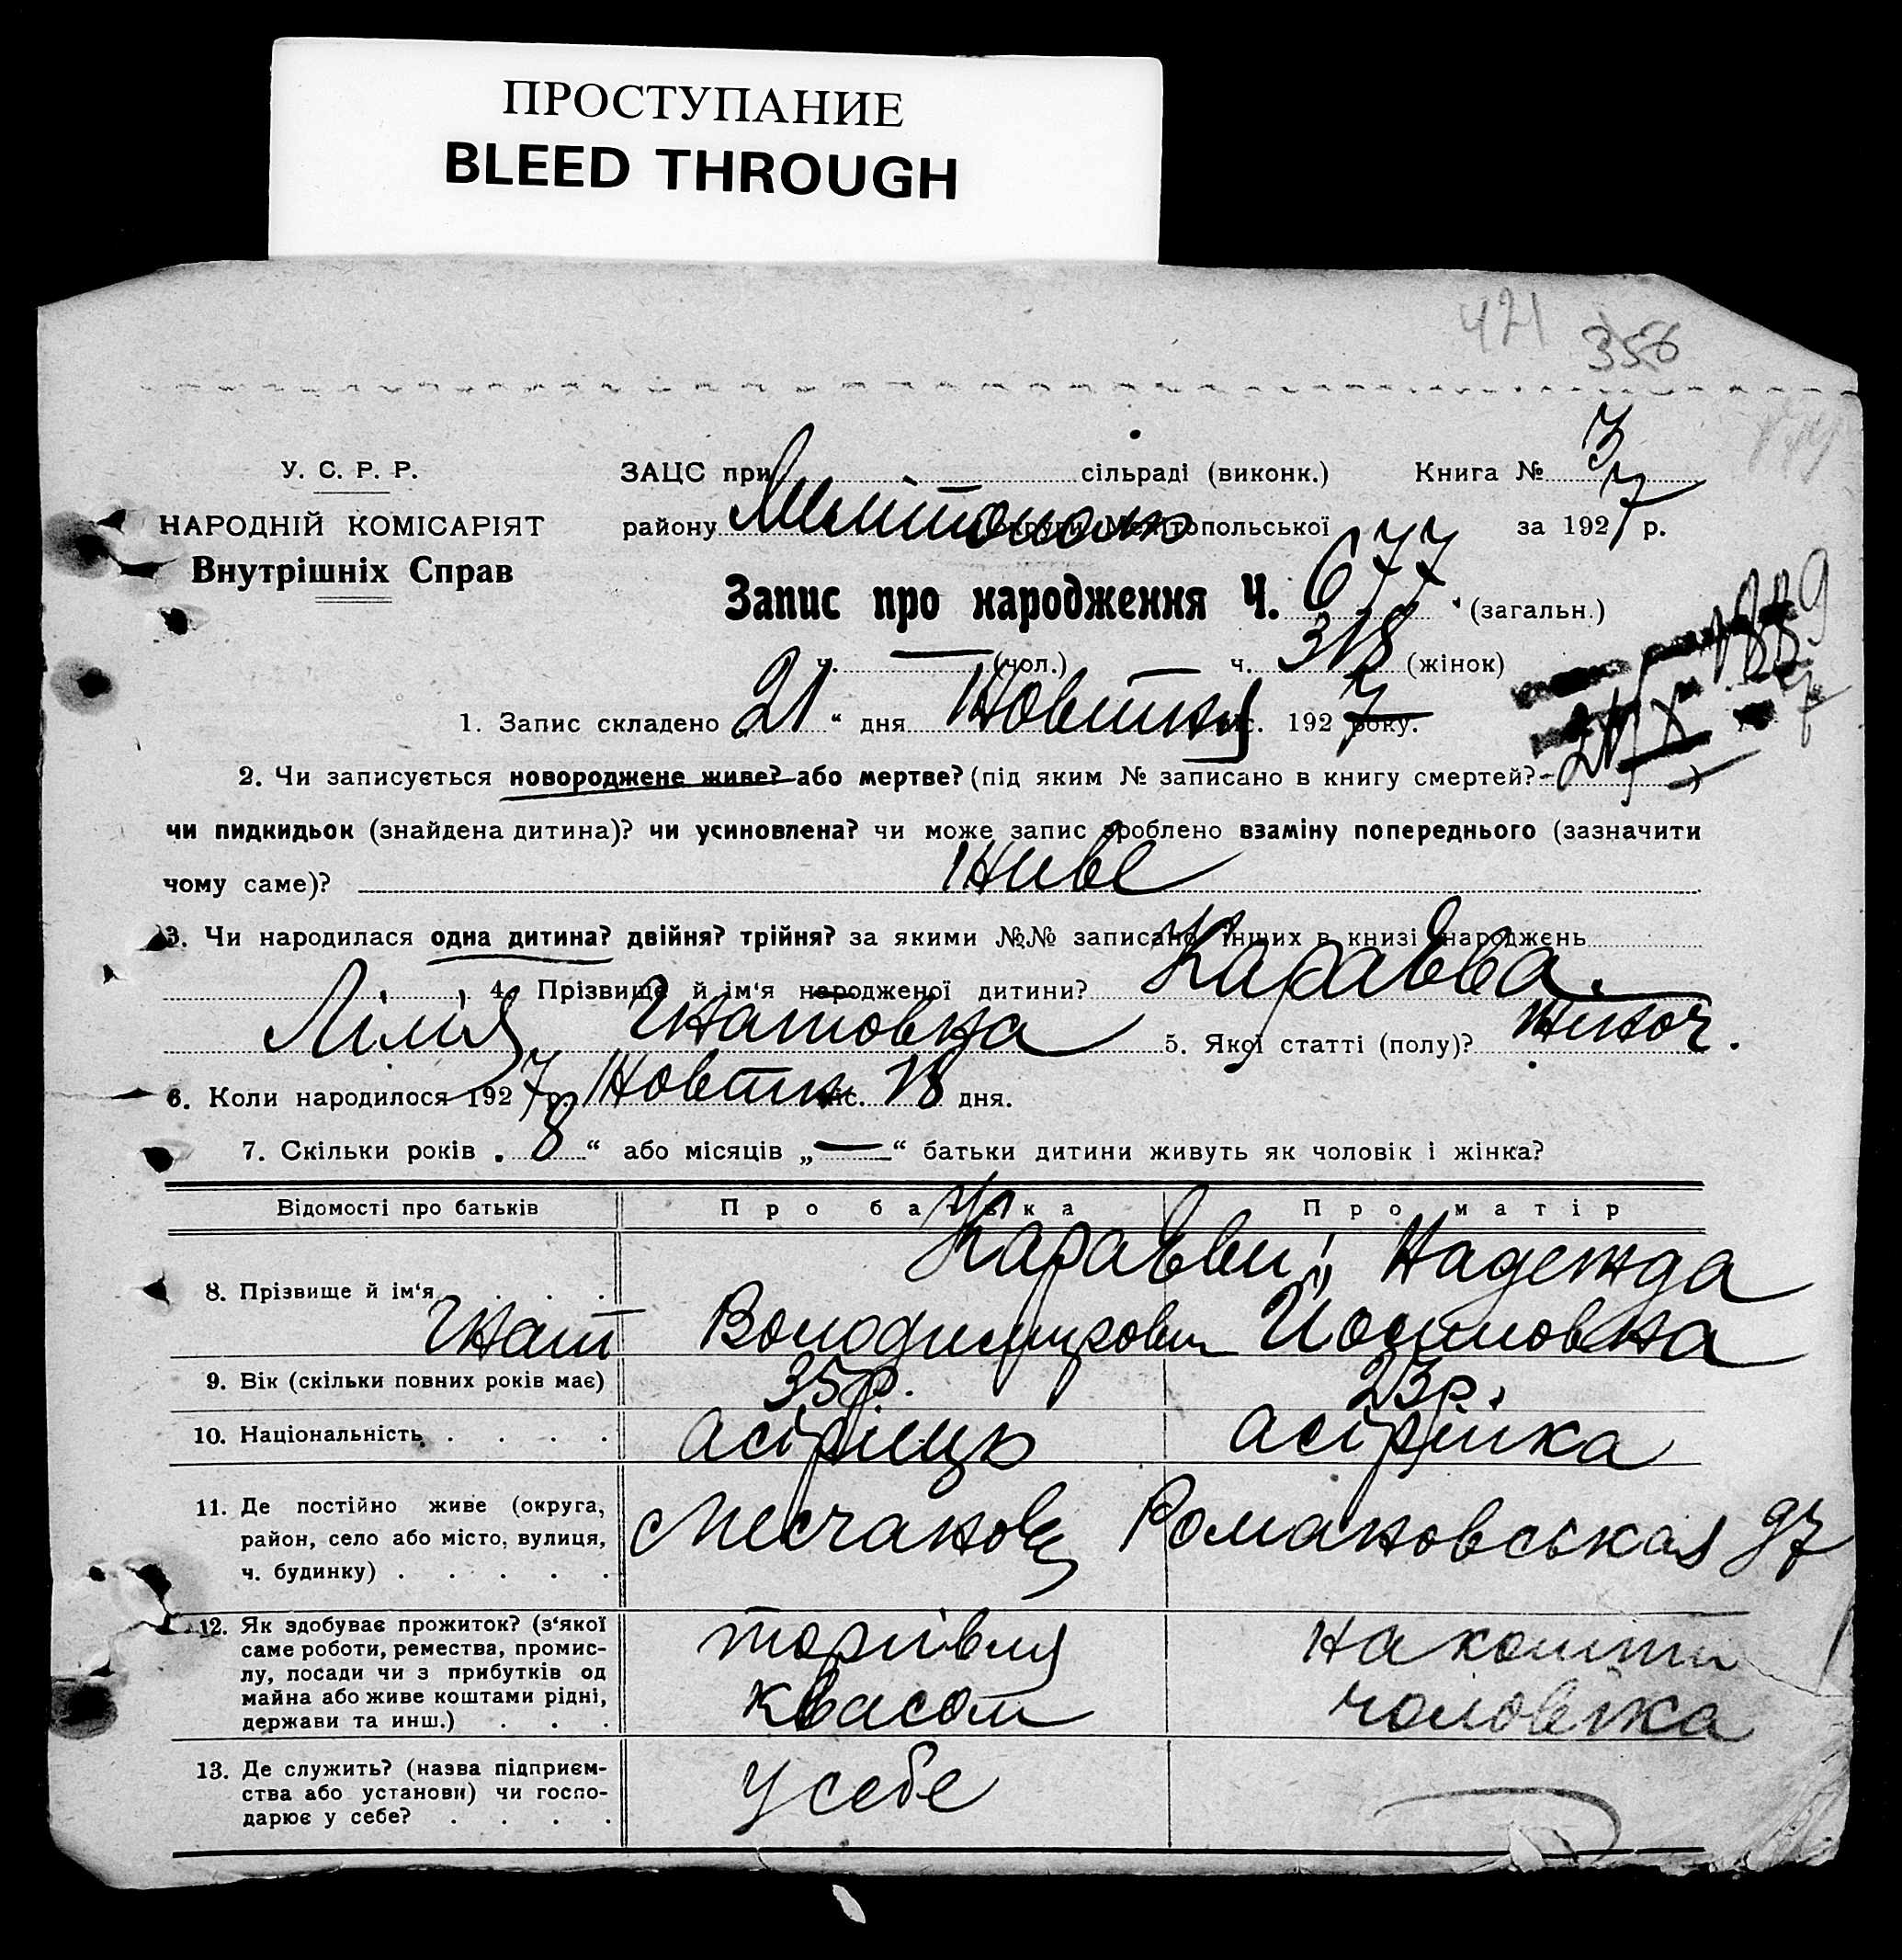 ПРОСТУПАНИЕ
BLEED THROUGH
421 356
У. С. Р. Р.
НАРОДНІЙ КОМІСАРІЯТ
Внутрішніх Справ
ЗАЦС при сільраді (виконк.) Книга № 3/7
району Мелітополь округи Мелітопольської за 1927 р.
Запис про народження Ч. 677 (загальн.)
ч. — (чол.) ч. 318 (жінок)
1. Запис складено 21 “ дня Жовтня міс. 1927 року.
2. Чи записується новороджене живе? або мертве? (під яким № записано в книгу смертей? - )
чи пидкидьок (знайдена дитина)? чи усиновлена? чи може запис зроблено взаміну попереднього (зазначити
чому саме)? Живе
3. Чи народилася одна дитина? двійня? трійня? за якими №№ записано інших в книзі народжень
4. Прізвище й ім‘я народженої дитини? Караєва.
Лілія Гнатовна 5. Якої статті (полу)? жіноч.
6. Коли народилося 1927 р. Жовтня міс. 18 дня.
7. Скільки років „ 8 “ або місяців „ — “ батьки дитини живуть як чоловік і жінка?
Відомості про батьків Про батька Про матір
8. Прізвище й ім‘я . . . . Караєви; Надежда
Гнат Володимирович Йосиповна
9. Вік (скільки повних років має) 35 р. 23 р.
10. Національність . . . . асірієць асірійка
11. Де постійно живе (округа,
район, село або місто, вулиця,
ч. будинку) . . . . . Романовськая 97
12. Як здобуває прожиток? (з‘якої
саме роботи, ремества, промис-
лу, посади чи з прибутків од
майна або живе коштами рідні,
держави та инш.) . . . торгівля квасом на кошти чоловіка
13. Де служить? (назва підприєм-
ства або установи) чи госпо-
дарює у себе? . . . . у себе